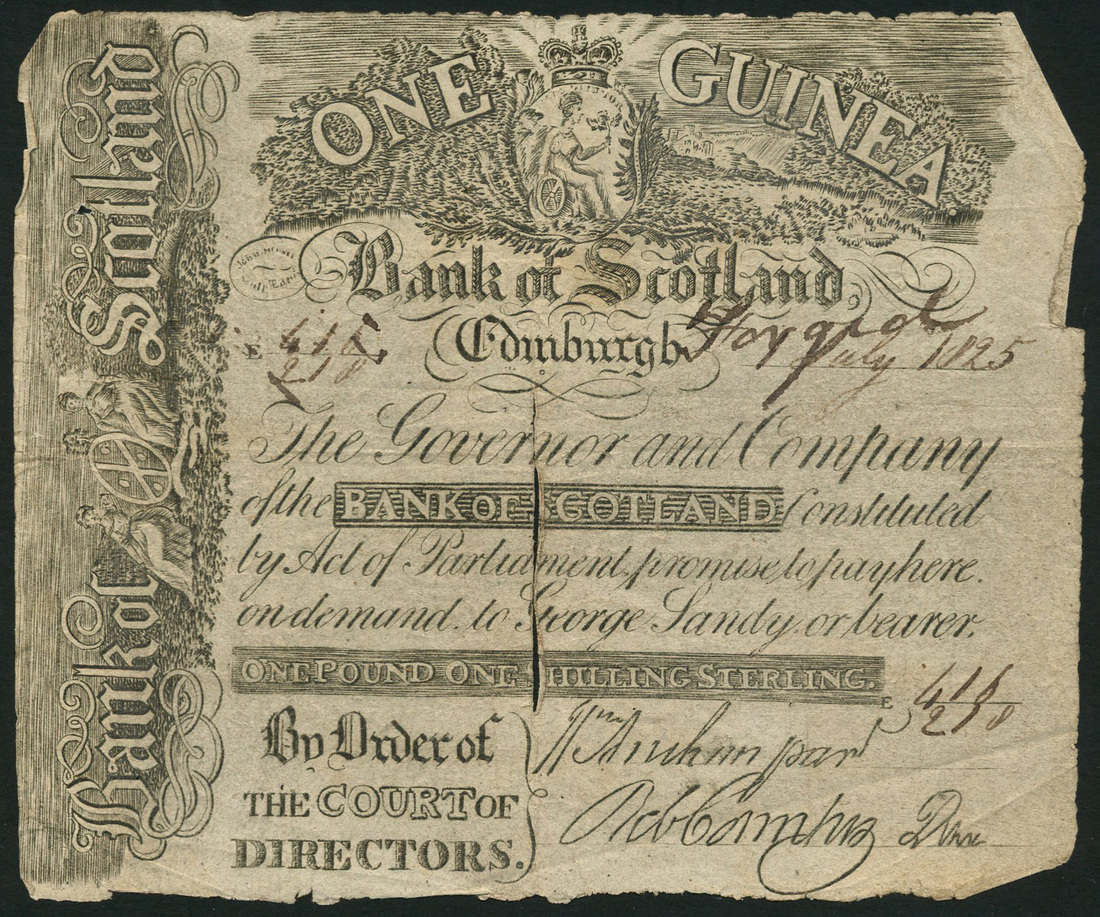 ONE GUINEA
Bank of Scotland
Bank of Scotland
Edinburgh Forged
July 1825
E 416
218
The Governor and Company
of the BANK OF SCOTLAND Constituted
by Act of Parliament, promise to pay here
on demand to George Sandy or bearer.
ONE POUND ONE SHILLING STERLING.
E 416
218
By Order of
THE COURT OF
DIRECTORS.